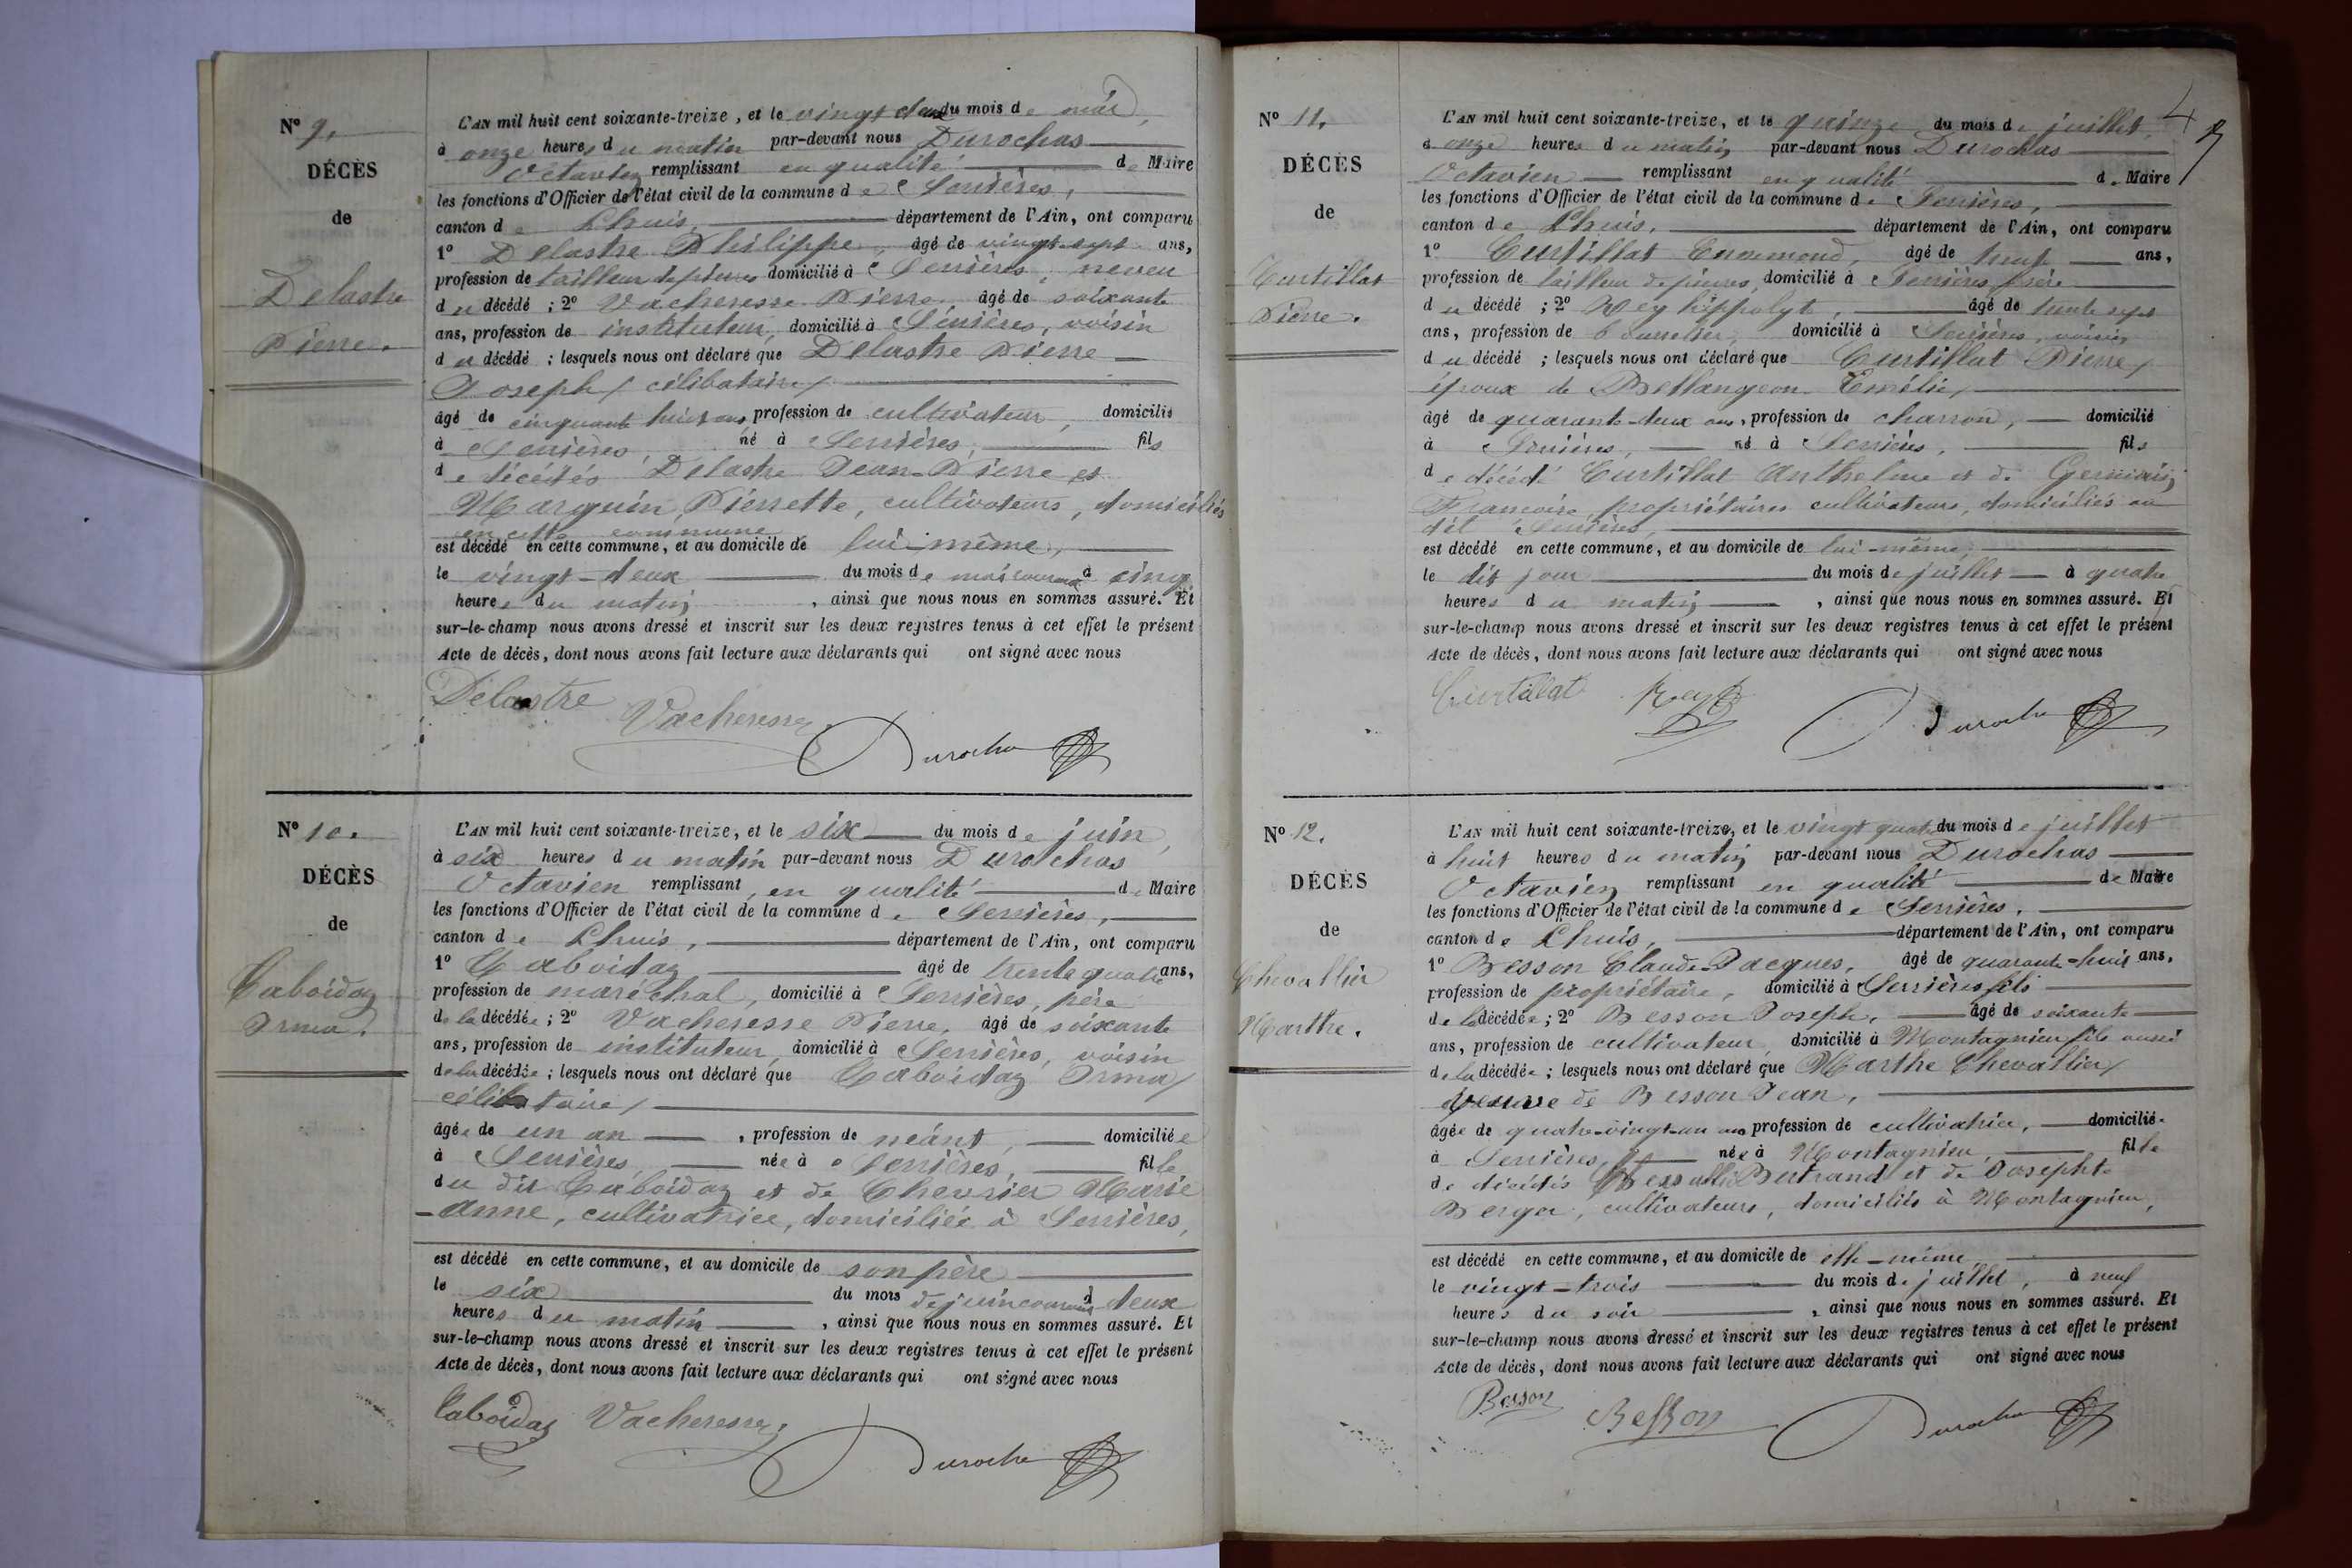 N° 9.
DÉCÈS
de
Delastre
Pierre.
L'AN mil huit cent soixante-treize, et le vingt deux du mois de mai,
à onze heures du matin par-devant nous Durochas
Octavien remplissant en qualité de Maire
les fonctions d'Officier de l'état civil de la commune de Serrières,
canton de Lhuis, département de l'Ain, ont comparu
1° Delastre Philippe, âgé de vingt-sept ans,
profession de tailleur de pierres domicilié à Serrières, neveu
du décédé ; 2° Vacheresse Pierre, âgé de soixante
ans, profession de instituteur, domicilié à Serrières, voisin
du décédé ; lesquels nous ont déclaré que Delastre Pierre
Joseph / célibataire /
âgé de cinquante huit ans, profession de cultivateur, domicilié
à Serrières, né à Serrières, fils
de décédés Delastre Jean-Pierre et
Marguin Pierrette, cultivateurs, domiciliés
en cette commune
est décédé en cette commune, et au domicile de lui-même,
le vingt-deux du mois de mai courant à cinq
heures du matin, ainsi que nous nous en sommes assuré. Et
sur-le-champ nous avons dressé et inscrit sur les deux registres tenus à cet effet le présent
Acte de décès, dont nous avons fait lecture aux déclarants qui ont signé avec nous
Delastre Vacheresse Durochas
N° 10.
DÉCÈS
de
Caboidaz
Irma.
L'AN mil huit cent soixante-treize, et le six du mois de juin,
à six heures du matin par-devant nous Durochas
Octavien remplissant, en qualité de Maire
les fonctions d'Officier de l'état civil de la commune de Serrières,
canton de Lhuis, département de l'Ain, ont comparu
1° Caboidaz âgé de trente quatre ans,
profession de maréchal, domicilié à Serrières, père
de la décédée ; 2° Vacheresse Pierre, âgé de soixante
ans, profession de instituteur, domicilié à Serrières, voisin
de la décédée ; lesquels nous ont déclaré que Caboidaz Irma /
célibataire /
âgée de un an, profession de néant, domiciliée
à Serrières, née à Serrières, fille
du dit Caboidaz et de Chevrier Marie
-Anne, cultivatrice, domiciliée à Serrières,
est décédé en cette commune, et au domicile de son père
le six du mois de juin courant à deux
heures du matin, ainsi que nous nous en sommes assuré. Et
sur-le-champ nous avons dressé et inscrit sur les deux registres tenus à cet effet le présent
Acte de décès, dont nous avons fait lecture aux déclarants qui ont signé avec nous
Caboidaz Vacheresse Durochas
4
N° 11.
DÉCÈS
de
Curtillat
Pierre.
L'AN mil huit cent soixante-treize, et le quinze du mois de juillet,
à onze heures du matin par-devant nous Durochas
Octavien remplissant en qualité de Maire
les fonctions d'Officier de l'état civil de la commune de Serrières,
canton de Lhuis, département de l'Ain, ont comparu
1° Curtillat Ennemond, âgé de ans,
profession de tailleur de pierres, domicilié à Serrières frère
du décédé ; 2° Rey hippolyte, âgé de trente sept
ans, profession de bourrelier, domicilié à Serrières, voisin
du décédé ; lesquels nous ont déclaré que Curtillat Pierre /
époux de Bellangeon Emélie /
âgé de quarante-deux ans, profession de charron, domicilié
à Serrières, né à Serrières, fils
de décédé Curtillat Anthelme et de Germain
Françoise, propriétaires cultivateurs, domiciliés au
dit Serrières,
est décédé en cette commune, et au domicile de lui-même,
le dit jour du mois de juillet à quatre
heures du matin, ainsi que nous nous en sommes assuré. Et
sur-le-champ nous avons dressé et inscrit sur les deux registres tenus à cet effet le présent
Acte de décès, dont nous avons fait lecture aux déclarants qui ont signé avec nous
Curtillat Rey Durochas
N° 12.
DÉCÈS
de
Chevallier
Marthe.
L'AN mil huit cent soixante-treize, et le vingt quatre du mois de juillet
à huit heures du matin par-devant nous Durochas
Octavien remplissant en qualité de Maire
les fonctions d'Officier de l'état civil de la commune de Serrières,
canton de Lhuis, département de l'Ain, ont comparu
1° Besson Claude-Jacques, âgé de quarante-huit ans,
profession de propriétaire, domicilié à Serrières fils
de la décédée ; 2° Besson Joseph, âgé de soixante
ans, profession de cultivateur, domicilié à Montagnieu fils aussi
de la décédée ; lesquels nous ont déclaré que Marthe Chevallier /
veuve de Besson Jean,
âgée de quatre-vingt-un ans profession de cultivatrice, domiciliée
à Serrières, née à Montagnieu, fille
de décédés Bertrand et de Josephte
Berger, cultivateurs, domiciliés à Montagnieu,
est décédé en cette commune, et au domicile de elle-même
le vingt-trois du mois de juillet, à neuf
heures du soir, ainsi que nous nous en sommes assuré. Et
sur-le-champ nous avons dressé et inscrit sur les deux registres tenus à cet effet le présent
Acte de décès, dont nous avons fait lecture aux déclarants qui ont signé avec nous
Besson Besson Durochas